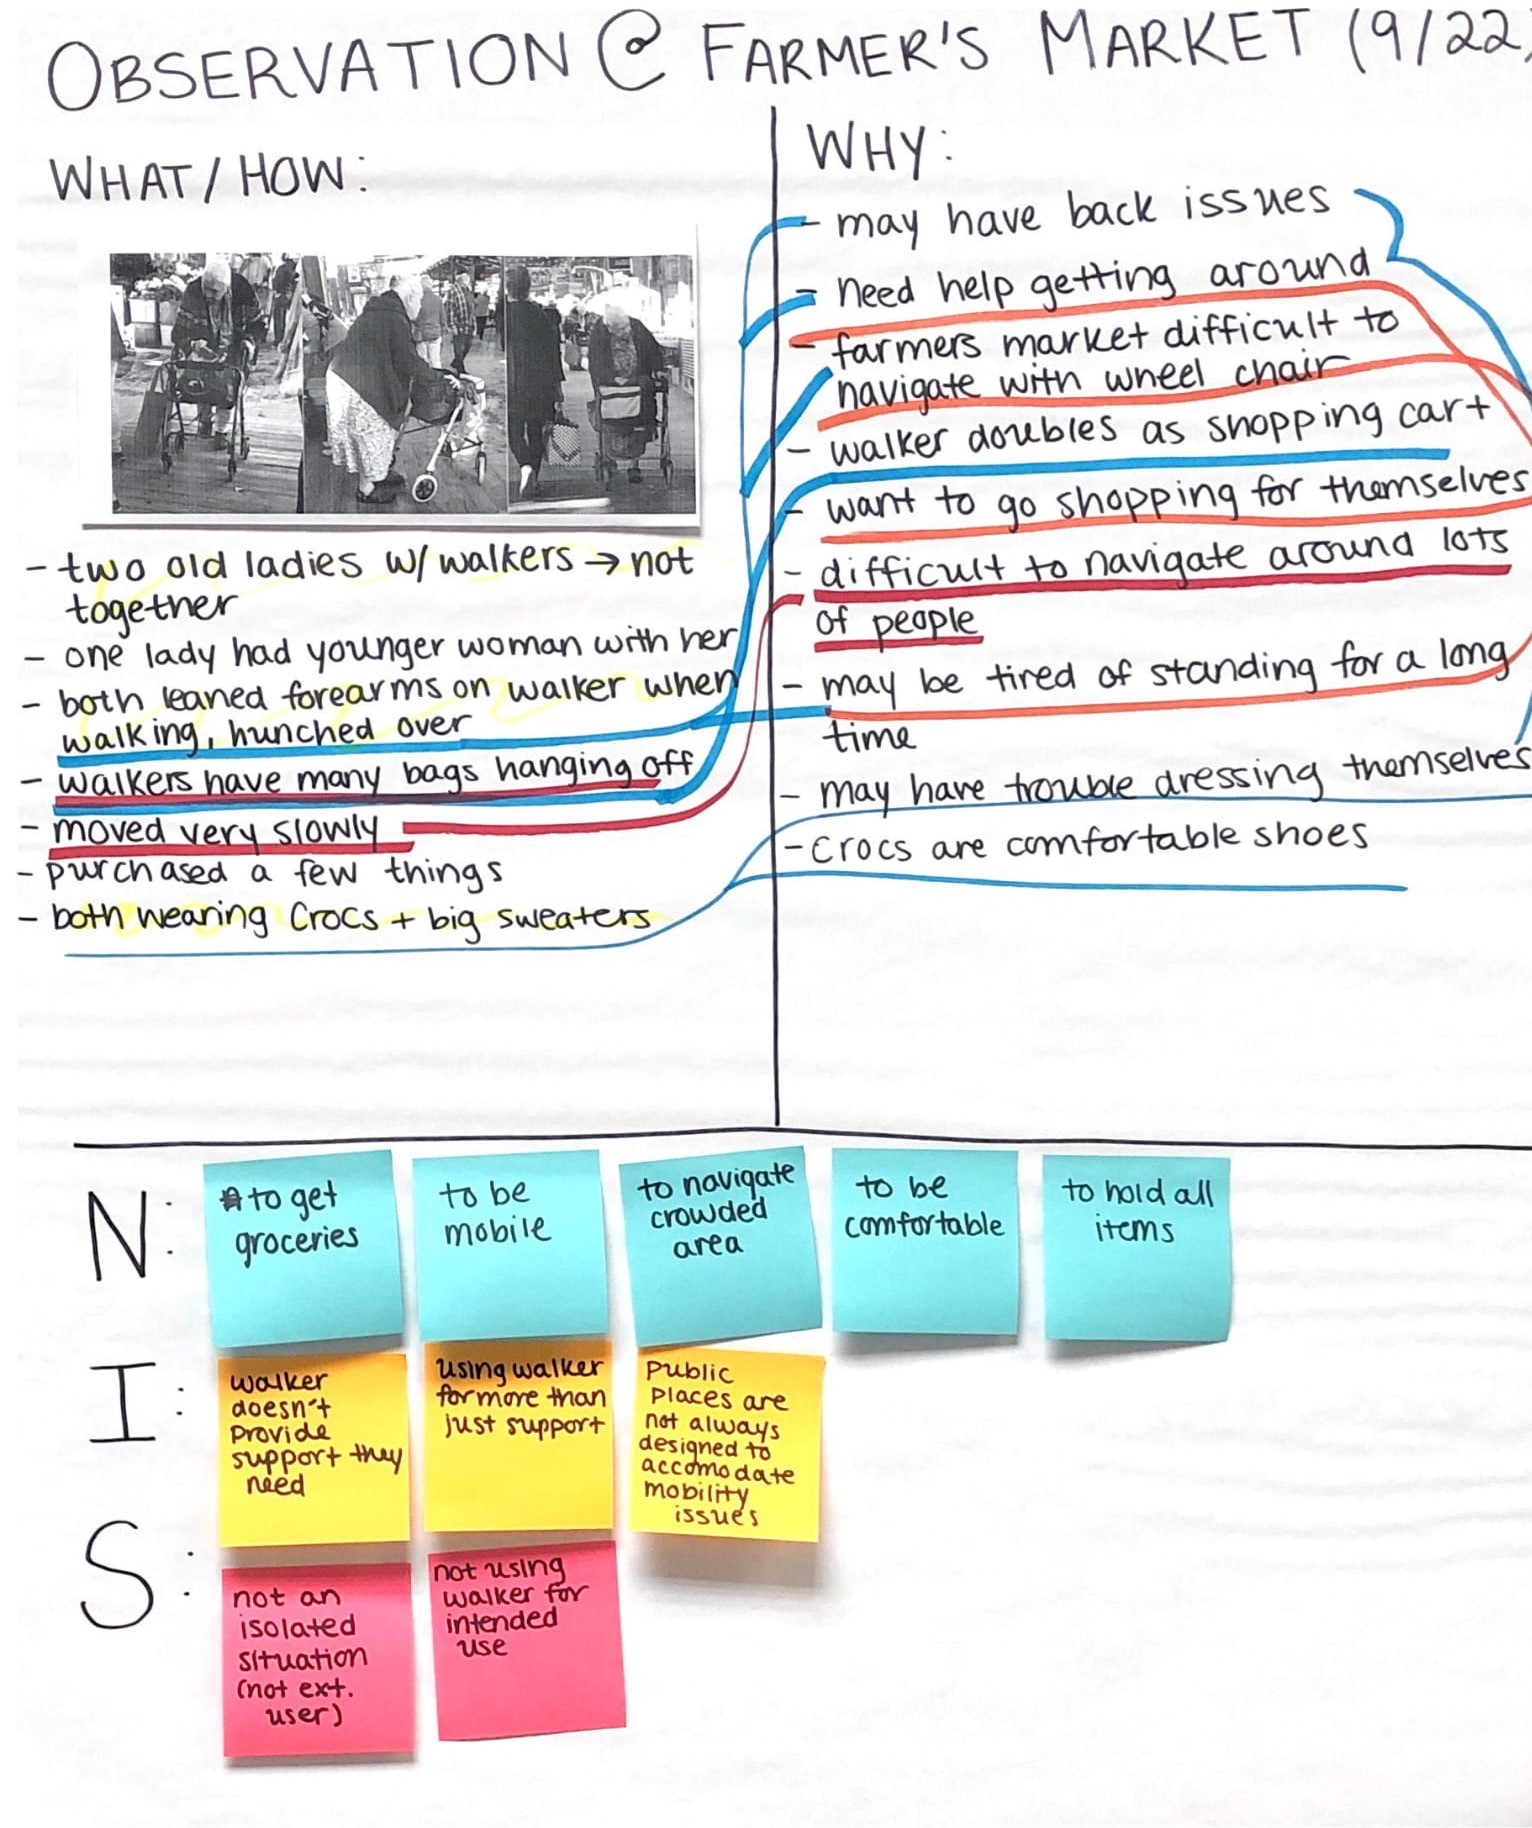 OBSERVATION @ FARMER'S MARKET (9/22)
WHAT/HOW:
- two old ladies w/ walkers → not
together
- one lady had younger woman with her
- both leaned forearms on walker when
walking, hunched over
- walkers have many bags hanging off
- moved very slowly
- purchased a few things
- both wearing Crocs + big sweaters
WHY:
- may have back issues
- need help getting around
- farmers market difficult to
navigate with wheel chair
- walker doubles as shopping cart
- want to go shopping for themselves
- difficult to navigate around lots
of people
- may be tired of standing for a long
time
- may have trouble dressing themselves
- crocs are comfortable shoes
N:
to get
groceries
to be
mobile
to navigate
crowded
area
to be
comfortable
to hold all
items
I:
walker
doesn't
provide
support they
need
using walker
for more than
just support
public
places are
not always
designed to
accomodate
mobility
issues
S:
not an
isolated
situation
(not ext.
user)
not using
walker for
intended
use